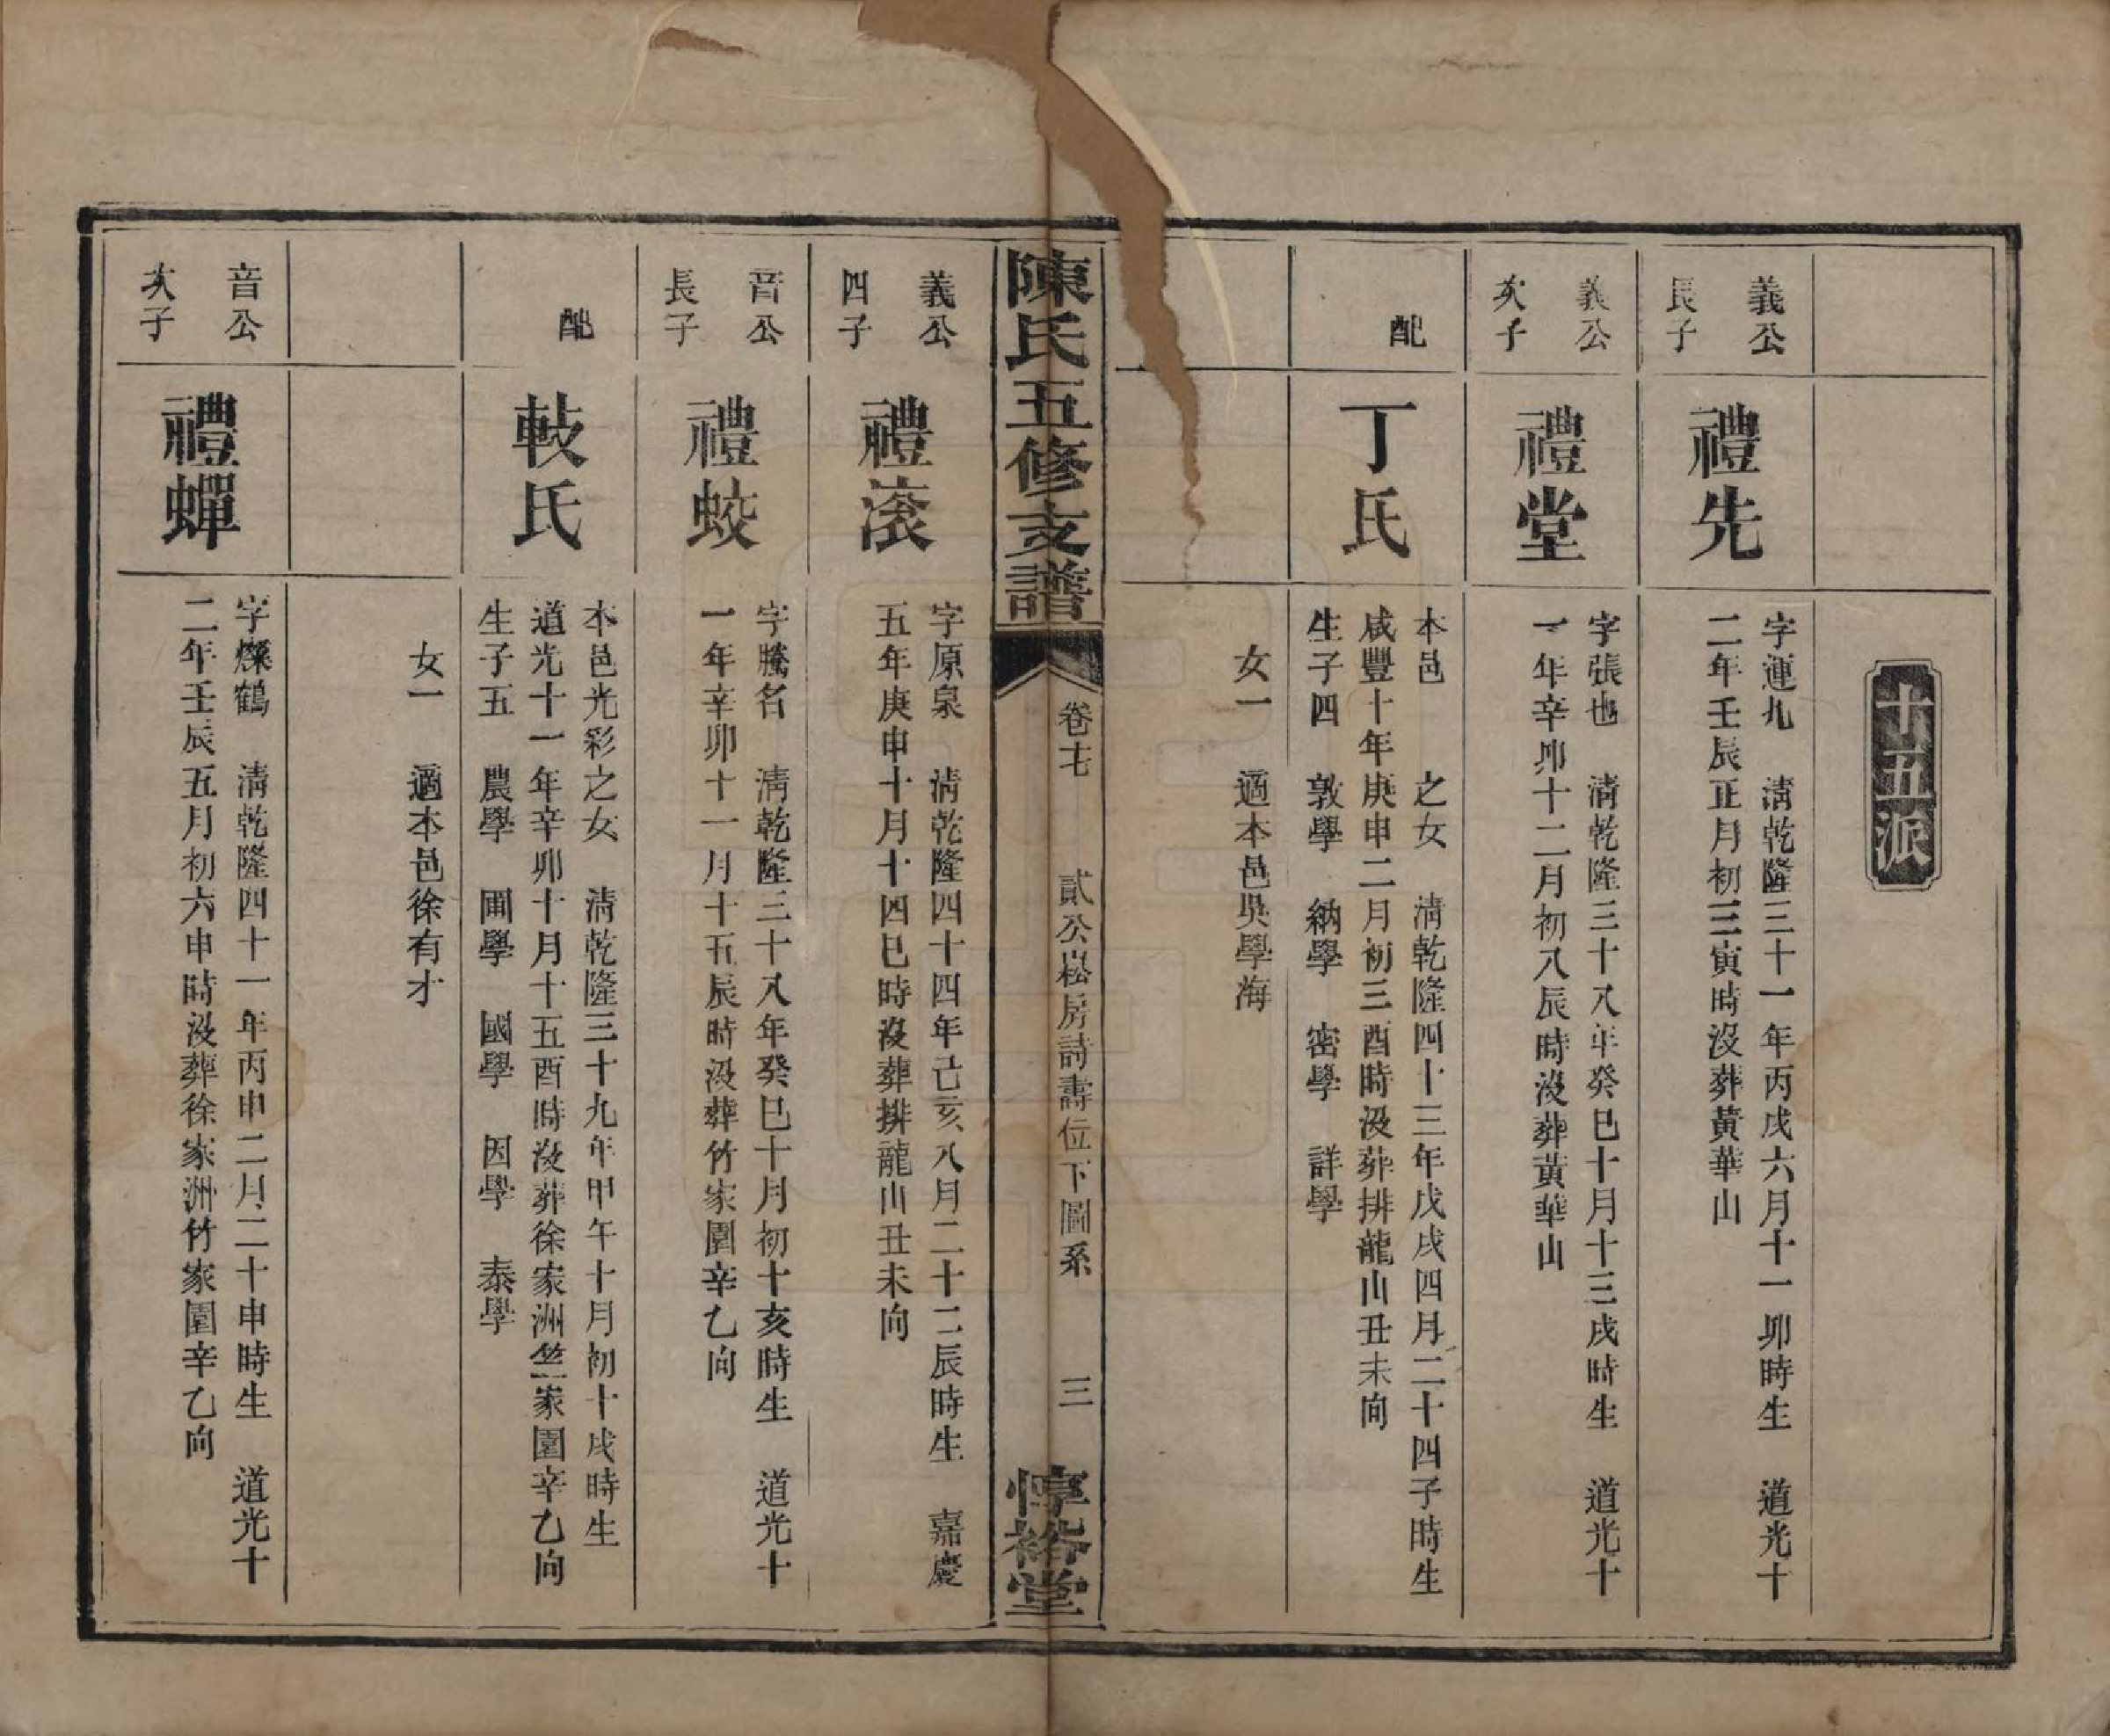 十五派
義公
長子
禮先
字運九　清乾隆三十一年丙戌六月十一卯時生　道光十
二年壬辰正月初三寅時沒葬黃華山
義公
次子
禮堂
字張也　清乾隆三十八年癸巳十月十三戌時生　道光十
一年辛卯十二月初八辰時沒葬黃華山
配
丁氏
本邑　之女　清乾隆四十三年戊戌四月二十四子時生
咸豐十年庚申二月初三酉時沒葬排龍山丑未向
生子四　敦學　納學　密學　詳學
女一　適本邑吳學海
陳氏五修支譜
卷十七
貳公崧房詩壽位下圖系
三
惇裕堂
義公
四子
禮滚
字原泉　清乾隆四十四年己亥八月二十二辰時生　嘉慶
五年庚申十月十四巳時沒葬排龍山丑未向
音公
長子
禮蛟
字騰名　清乾隆三十八年癸巳十月初十亥時生　道光十
一年辛卯十一月十五辰時沒葬竹家園辛乙向
配
㪇氏
本邑光彩之女　清乾隆三十九年甲午十月初十戌時生
道光十一年辛卯十月十五酉時沒葬徐家洲竺家園辛乙向
生子五　農學　圃學　國學　因學　泰學
女一　適本邑徐有才
音公
次子
禮蟬
字燦鶴　清乾隆四十一年丙申二月二十申時生　道光十
二年壬辰五月初六申時沒葬徐家洲竹家園辛乙向